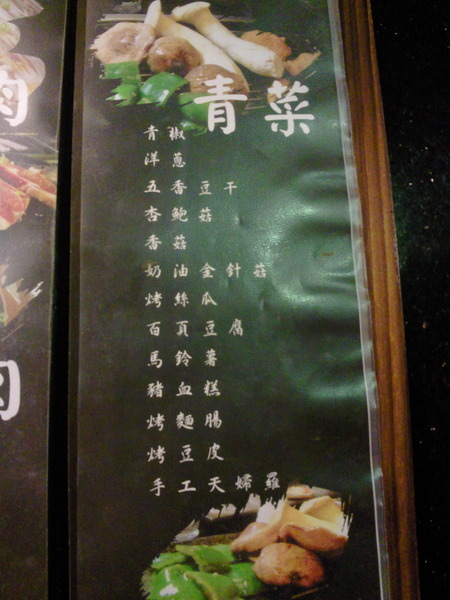 肉
肉
青菜
青椒
洋蔥
五香豆干
杏鮑菇
香菇
奶油金針菇
烤絲瓜
百頁豆腐
馬鈴薯
豬血糕
烤麵腸
烤豆皮
手工天婦羅